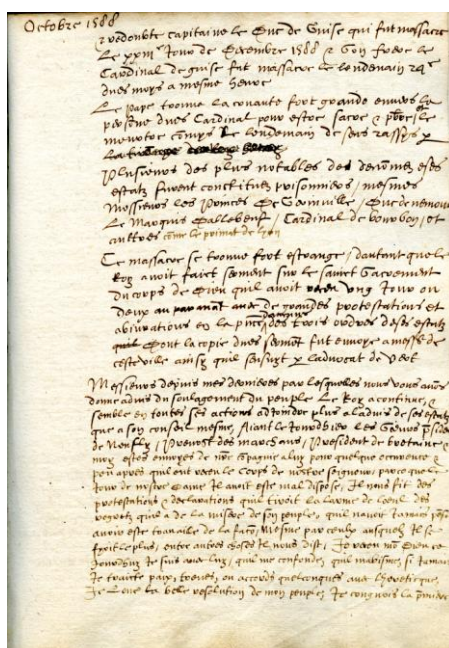 Octobre 1588
redoubte capitaine le Duc de Guise qui fut massacre
Le xxiii^e Jour de Decembre 1588 & son frere le
Cardinal de guise fut massacre le lendemain 24^e
dudit moys a mesme heure
Le pape trouva la cruaute fort grande envers la
personne dudit Cardinal pour estre sacre &
le lendemain de
Plusieurs des plus notables des denommez esditz
estatz furent constituez prisonniers / mesmes
Messieurs les Princes de Genville / Duc de nemours
Le Marquis Dallebeuf / Cardinal de bourbon / et
aultres come le primat de lyon
Ce massacre se trouva fort estrange / dautant que le
Roy avoit faict serment sur le sainct Sacrement
du corps de Dieu quil avoit receu ung Jour ou
deux avec de grandes protestations et
abiurations en la des trois ordres desditz estatz
Dont la copie dudit serment fut envoye a messrs de
ceste ville ainsy quil sensuyt
Messieurs depuis mes dernieres par lesquelles nous vous avons
donne advis du soulagement du peuple Le Roy a continue &
semble en toutes ses actions adioindre plus a ladvis de ses estatz
que a son conseil mesme / Aiant le Jourdhier les
de / Prevost des marchans / President de bretaine &
moy estes envoyez de nre compagnie a luy pour quelque occurence
peu apres quil eut receu le Corps de nostre seigneur / parce que le
Jour de nostre Dame Il avoit este mal dispose / Il nous fit des
protestations & declarations quil tiroit la larme de loeil des
regretz quil a de la misere de son peuple / quil navoit Jamais
avoir este travaille de la facon / Mesme par ceulx ausquelz Il se
fyoit le plus / entre autres choses Il nous dist / Jay receu mon Dieu ce
Jourdhuy Je suis avec luy / quil me confonde / quil mabisme / si Jamais
Je traicte paix / treves / ou accords quelconques avec lheretique /
Je Loue la belle resolution de mon peuple / Je congnois la premiere